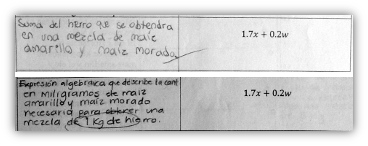 Suma del hierro que se obtendra
en una mezcla de maiz
amarillo y maiz morado
1.7x + 0.2w
Expresión algebraica que describe la cant
en miligramos de maiz
amarillo y maiz morado
necesaria para obtener una
mezcla de 1 kg de hierro.
1.7x + 0.2w